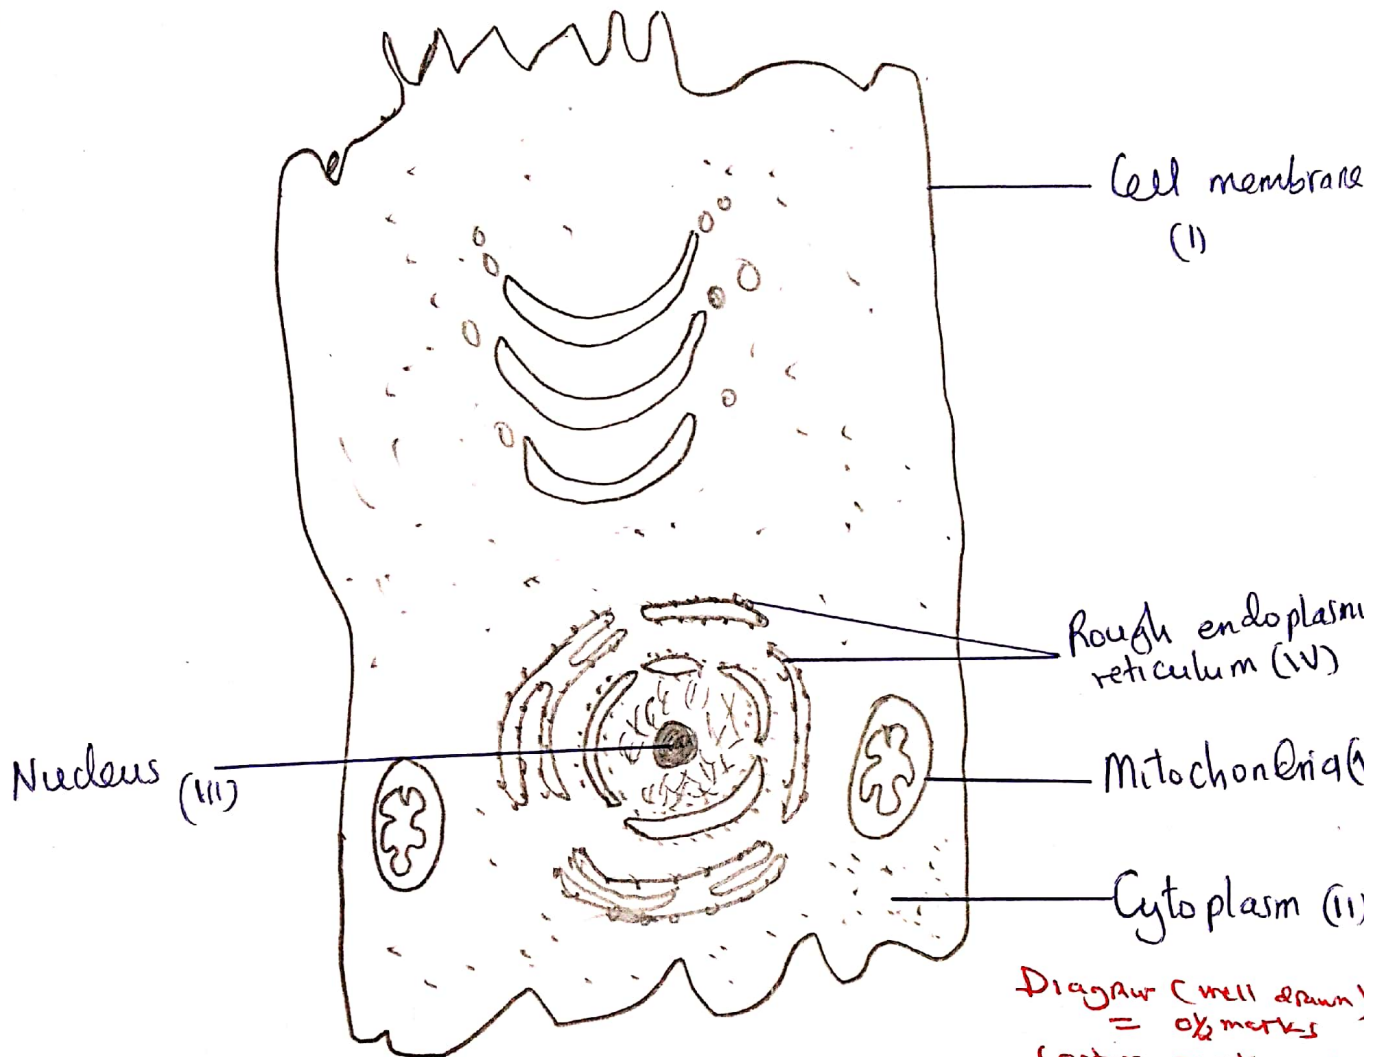 Cell membrane
(I)
Rough endoplasm
reticulum (IV)
Nucleus (III)
Mitochondria (
Cytoplasm (II)
Diagram (well drawn)
= 0½ marks